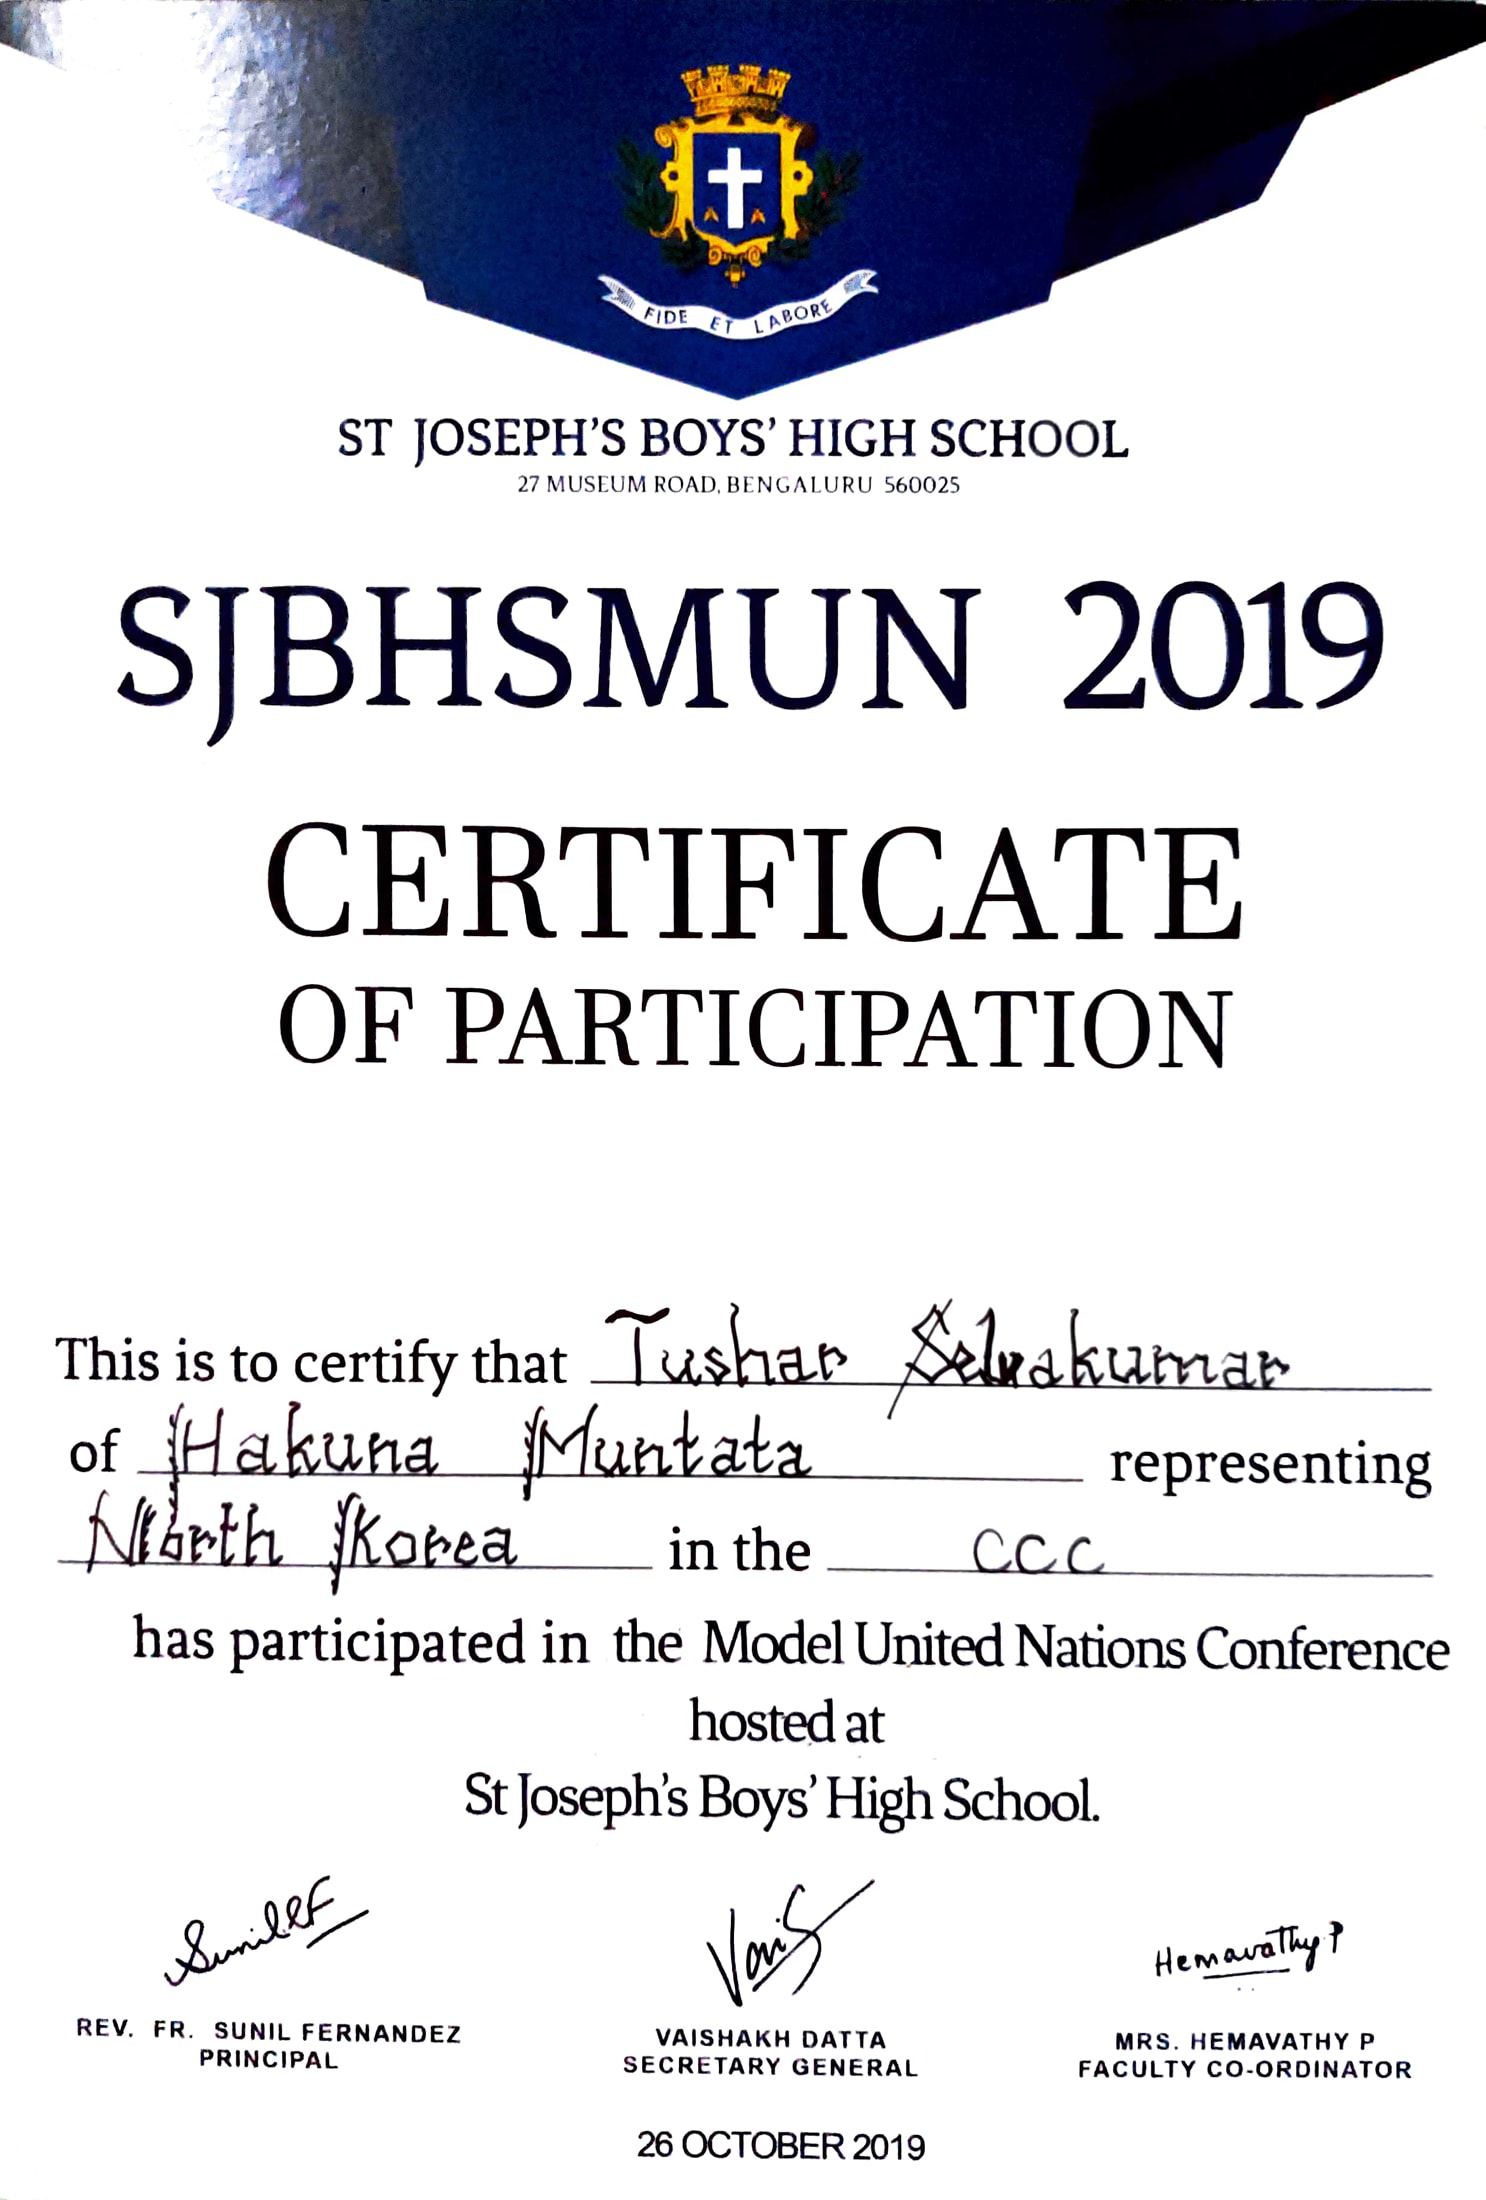 FIDE ET LABORE
ST JOSEPH'S BOYS' HIGH SCHOOL
27 MUSEUM ROAD, BENGALURU 560025
SJBHSMUN 2019
CERTIFICATE
OF PARTICIPATION
This is to certify that Tushar Selvakumar
of Hakuna Muntata representing
North Korea in the CCC
has participated in the Model United Nations Conference
hosted at
St Joseph's Boys' High School.
Sunil F Hemavathy P
REV. FR. SUNIL FERNANDEZ VAISHAKH DATTA MRS. HEMAVATHY P
PRINCIPAL SECRETARY GENERAL FACULTY CO-ORDINATOR
26 OCTOBER 2019